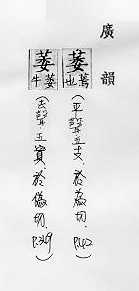 廣韻
萎 蔫也
(平聲五支.於為切.P.42)
萎 牛萎
(去聲五寘.於偽切.P.349)